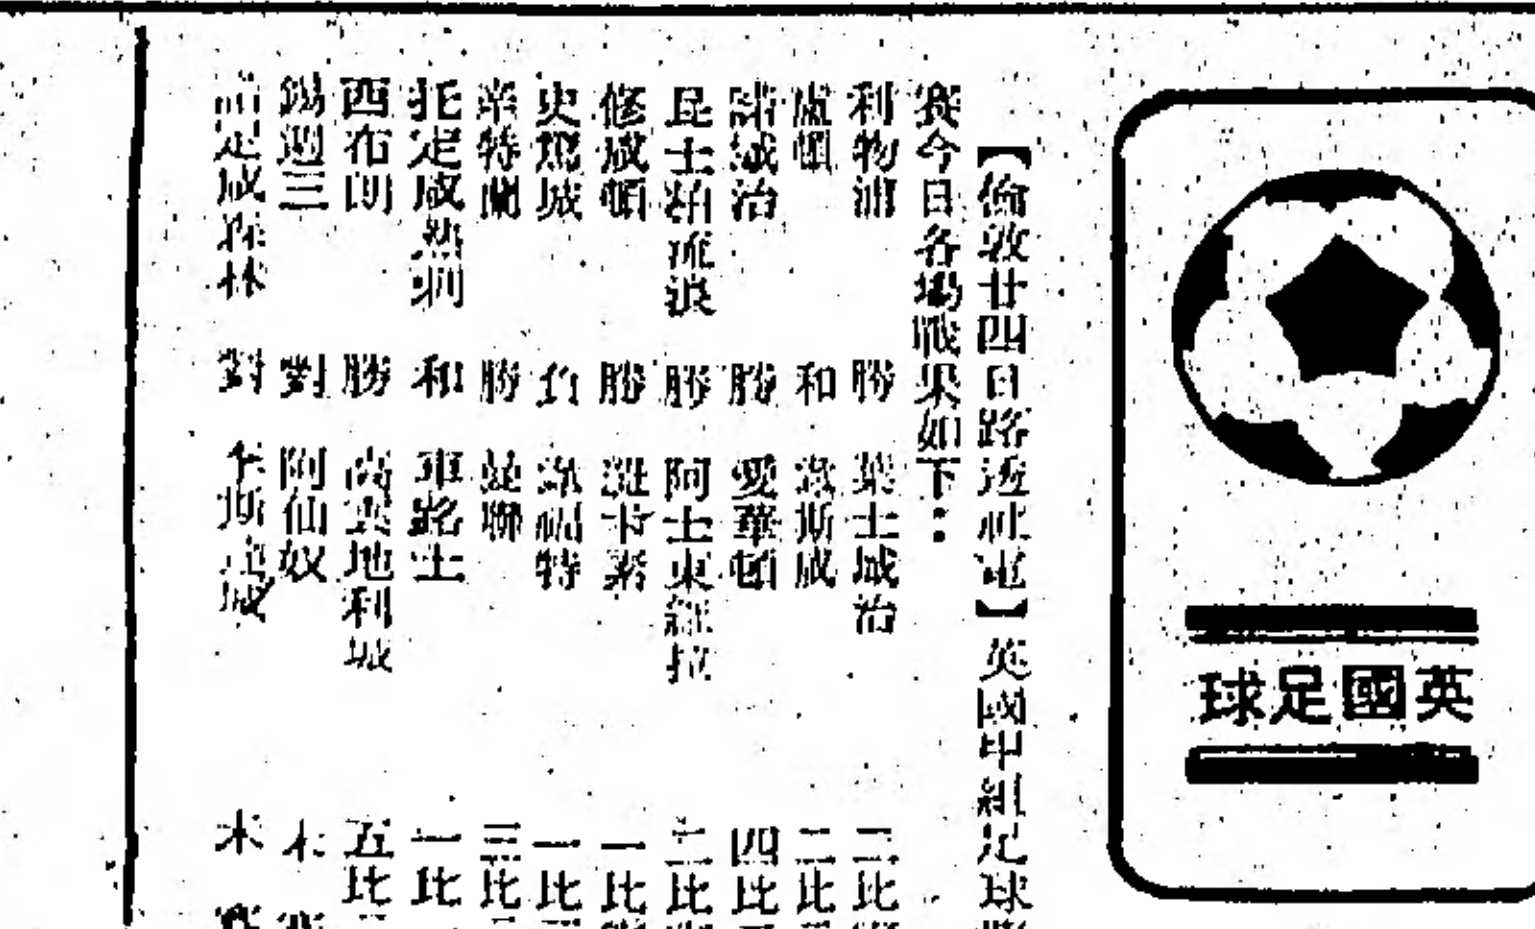 英國足球
【倫敦廿四日路透社電】英國甲組足球
賽今日各場戰果如下：
利物浦 勝 葉士域治 二比
盧頓 和 韋斯咸 二比
諾域治 勝 愛華頓 四比
昆士柏流浪 勝 阿士東維拉 二比
修咸頓 勝 紐卡素 一比
史篤城 負 屈福特 一比
雲特蘭 勝 曼聯 三比
托定咸熱刺 和 車路士 一比
西布朗 勝 高雲地利城 五比
錫週三 對 阿仙奴 未
諾定咸森林 對 李斯特城 未